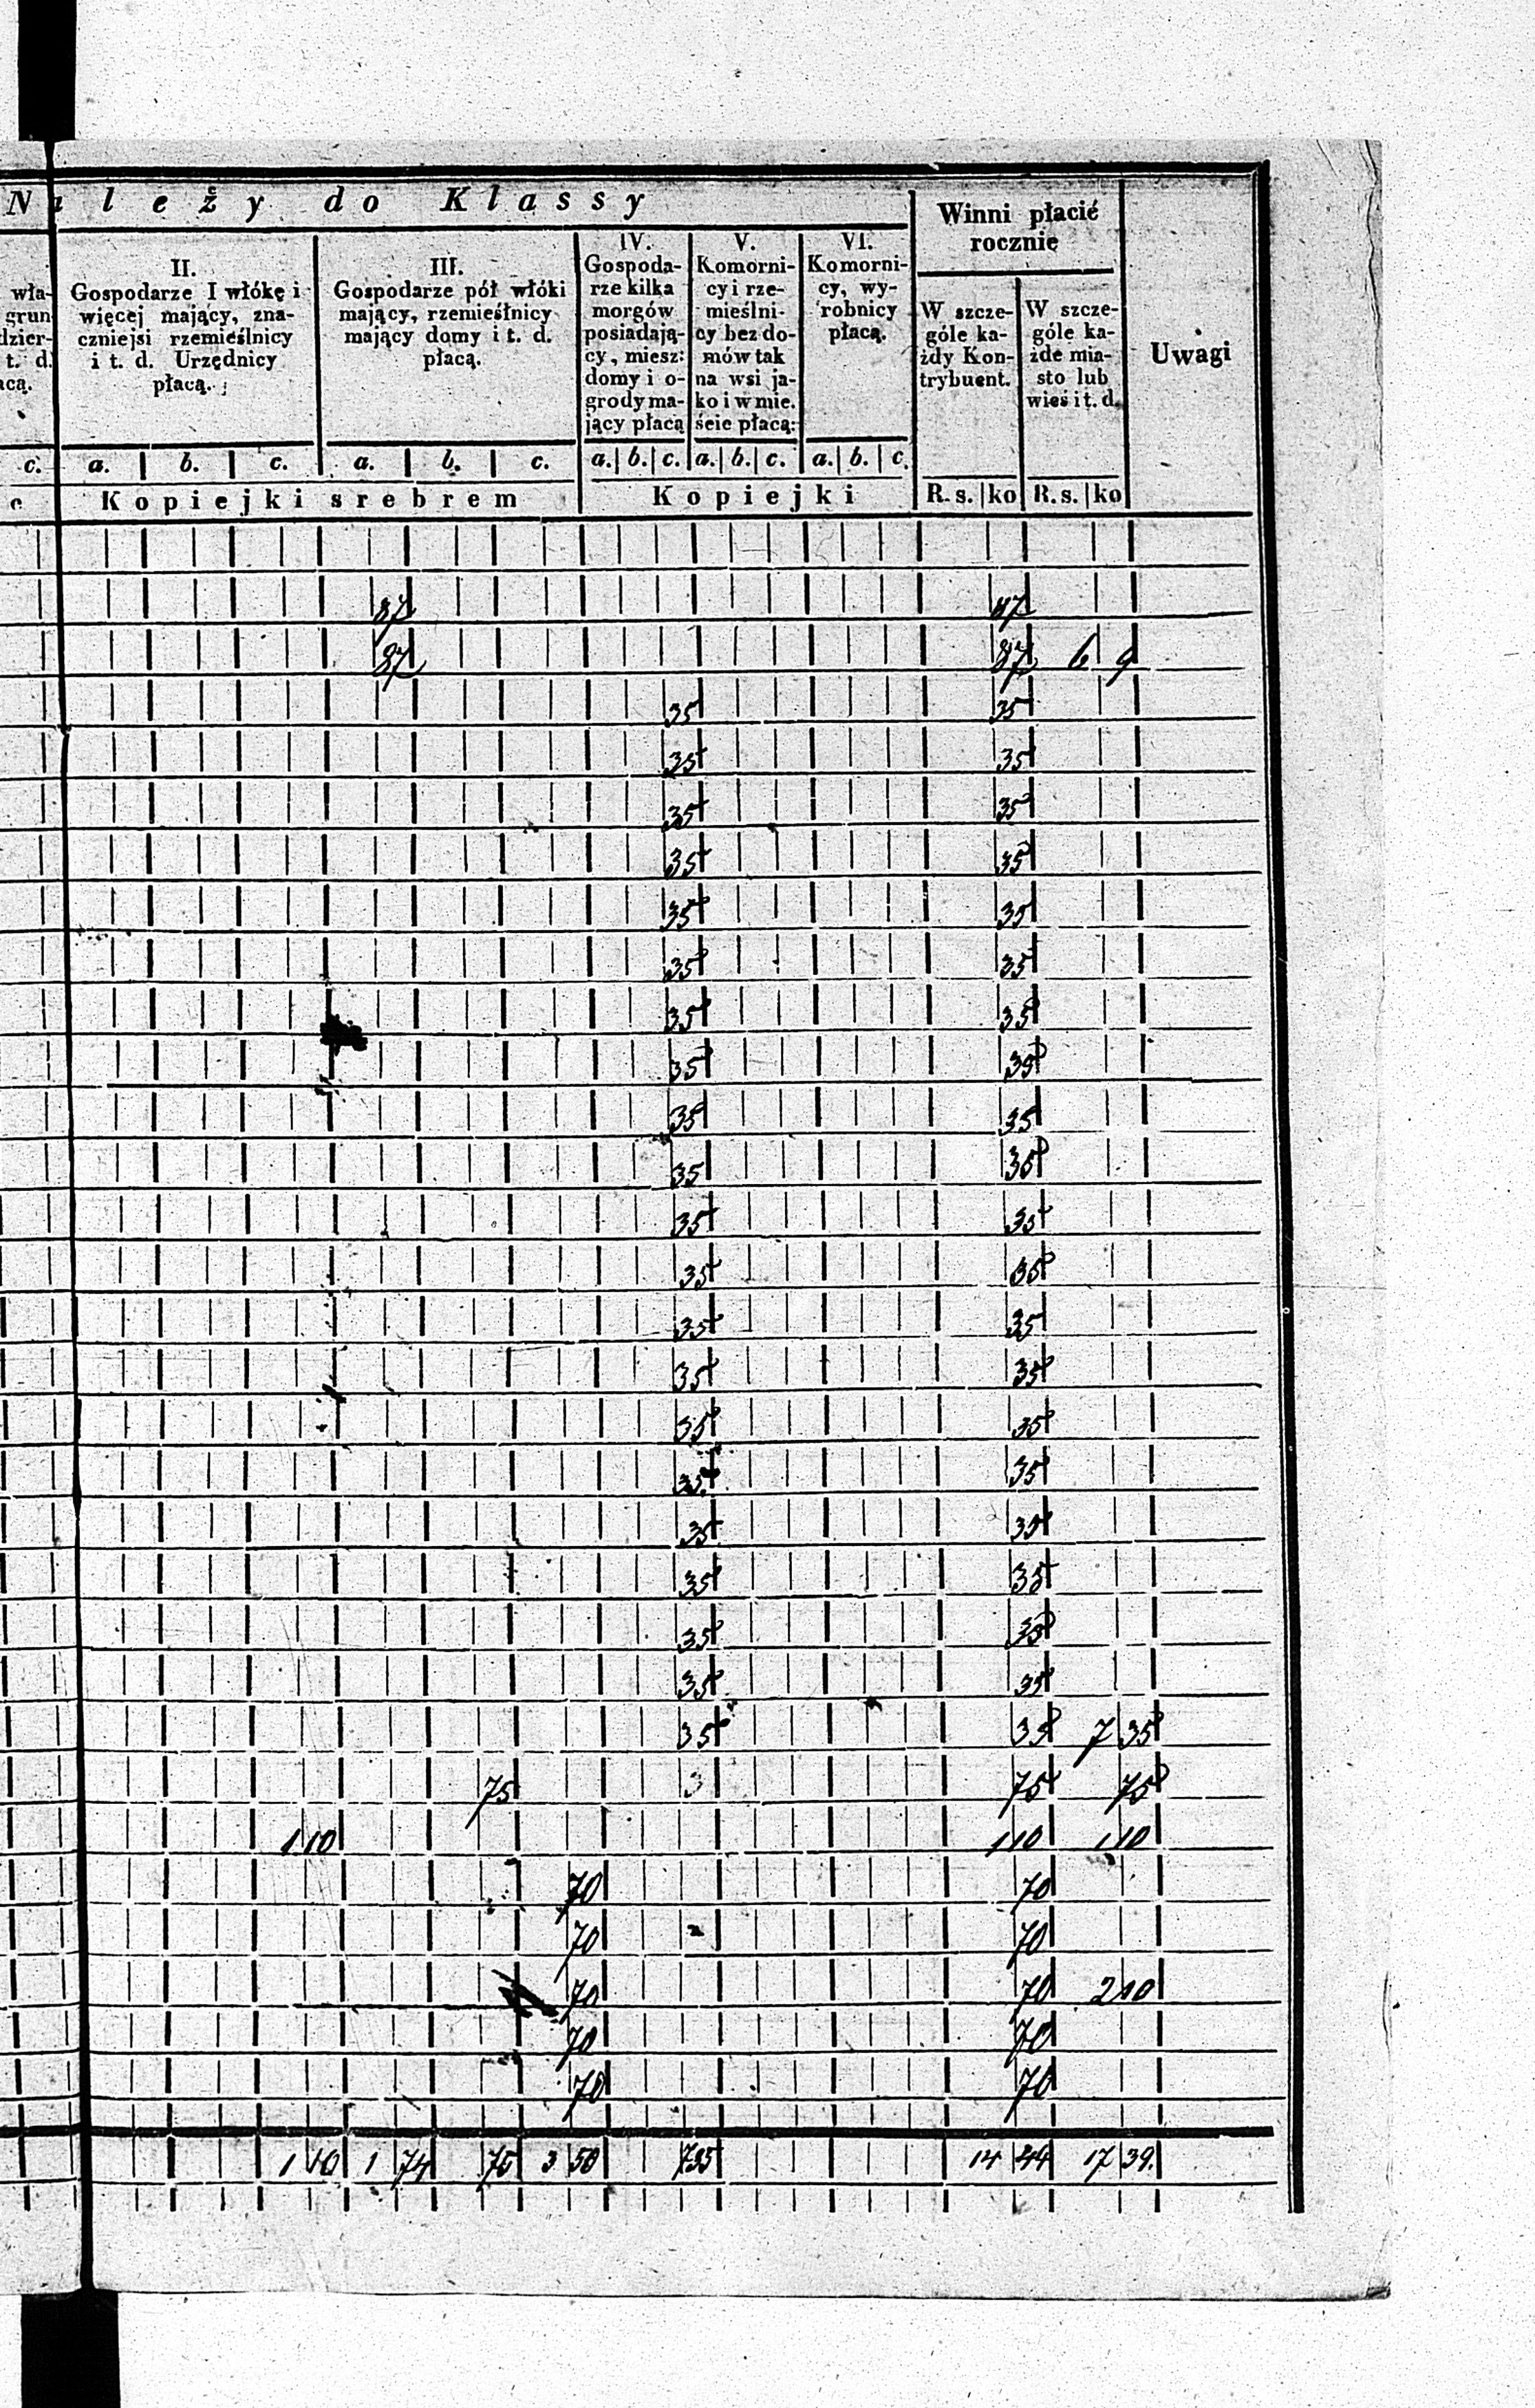 Należy do Klassy
Winni płacić
rocznie
Uwagi
wła-
grun
dzier-
t. d.
acą.
II.
Gospodarze I włókę i
więcej mający, zna-
czniejsi rzemieślnicy
i t. d. Urzędnicy
płacą.
III.
Gospodarze pół włóki
mający, rzemieślnicy
mający domy i t. d.
płacą.
IV.
Gospoda-
rze kilka
morgów
posiadają-
cy, miesz:
domy i o-
grody ma-
jący płacą
V.
Komorni-
cy i rze-
mieślni-
cy bez do-
mów tak
na wsi ja-
ko i w mie.
ście płacą:
VI.
Komorni-
cy, wy-
robnicy
płacą.
W szcze-
góle ka-
żdy Kon-
trybuent.
W szcze-
góle ka-
żde mia-
sto lub
wieś i t. d.
c. a. b. c. a. b. c. a. b. c. a. b. c. a. b. c.
Kopiejki srebrem Kopiejki R. s. ko R. s. ko
87 87
87 87 6 9
35 35
35 35
35 35
35 35
35 35
35 35
35 35
35 35
35 35
35 35
35 35
35 35
35 35
35 35
35 35
35 35
35 35
35 35
35 35
35 35
35 35 7 35
75 3 75 75
1 10 1 10 1 10
70 70
70 70
70 70 2 10
70 70
70 70
1 10 1 74 75 3 50 735 14 44 17 39.